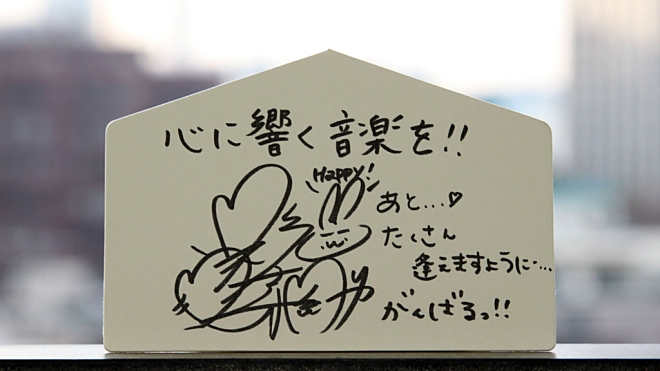 心に響く音楽を!!
Happy!
あと...♡
たくさん
逢えますように....
がんばるっ!!